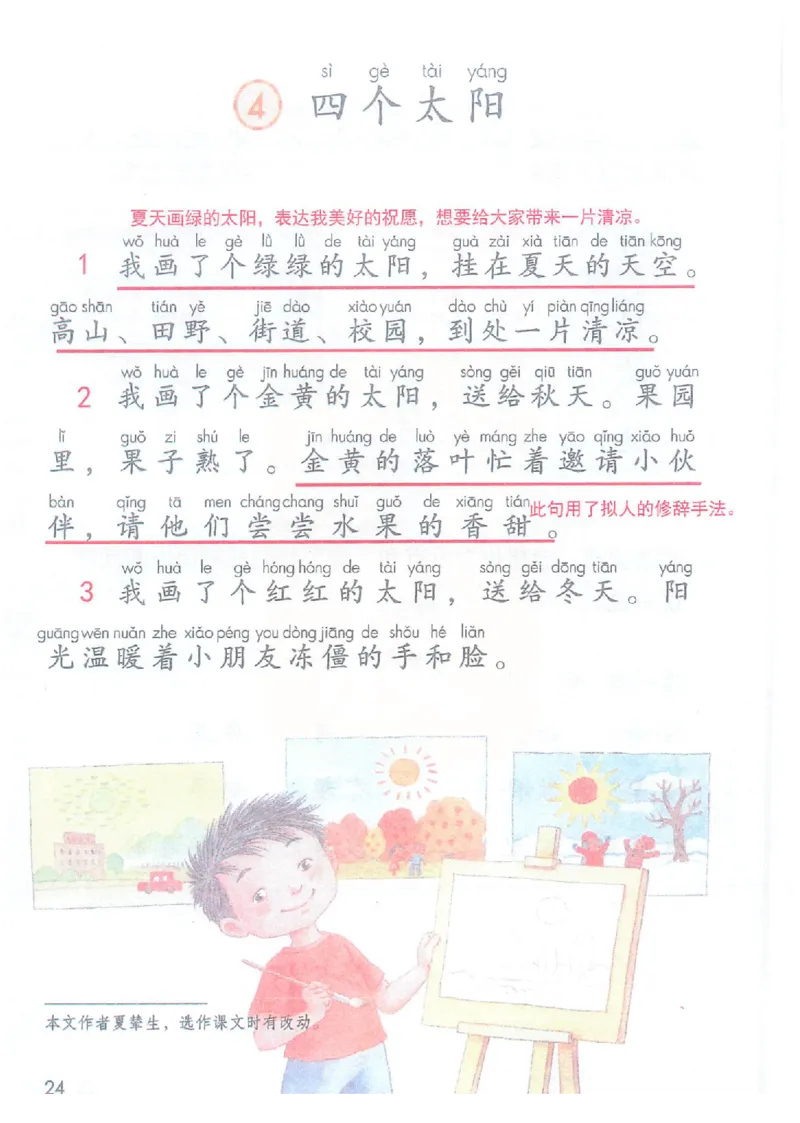 sì gè tài yáng
4 四个太阳
夏天画绿的太阳，表达我美好的祝愿，想要给大家带来一片清凉。
wǒ huà le gè lǜ lǜ de tài yáng guà zài xià tiān de tiān kōng
1 我画了个绿绿的太阳，挂在夏天的天空。
gāo shān tián yě jiē dào xiào yuán dào chù yí piàn qīng liáng
高山、田野、街道、校园，到处一片清凉。
wǒ huà le gè jīn huáng de tài yáng sòng gěi qiū tiān guǒ yuán
2 我画了个金黄的太阳，送给秋天。果园
lǐ guǒ zi shú le jīn huáng de luò yè máng zhe yāo qǐng xiǎo huǒ
里，果子熟了。金黄的落叶忙着邀请小伙
bàn qǐng tā men cháng chang shuǐ guǒ de xiāng tián
伴，请他们尝尝水果的香甜。
此句用了拟人的修辞手法。
wǒ huà le gè hóng hóng de tài yáng sòng gěi dōng tiān yáng
3 我画了个红红的太阳，送给冬天。阳
guāng wēn nuǎn zhe xiǎo péng you dòng jiāng de shǒu hé liǎn
光温暖着小朋友冻僵的手和脸。
本文作者夏辇生，选作课文时有改动。
24